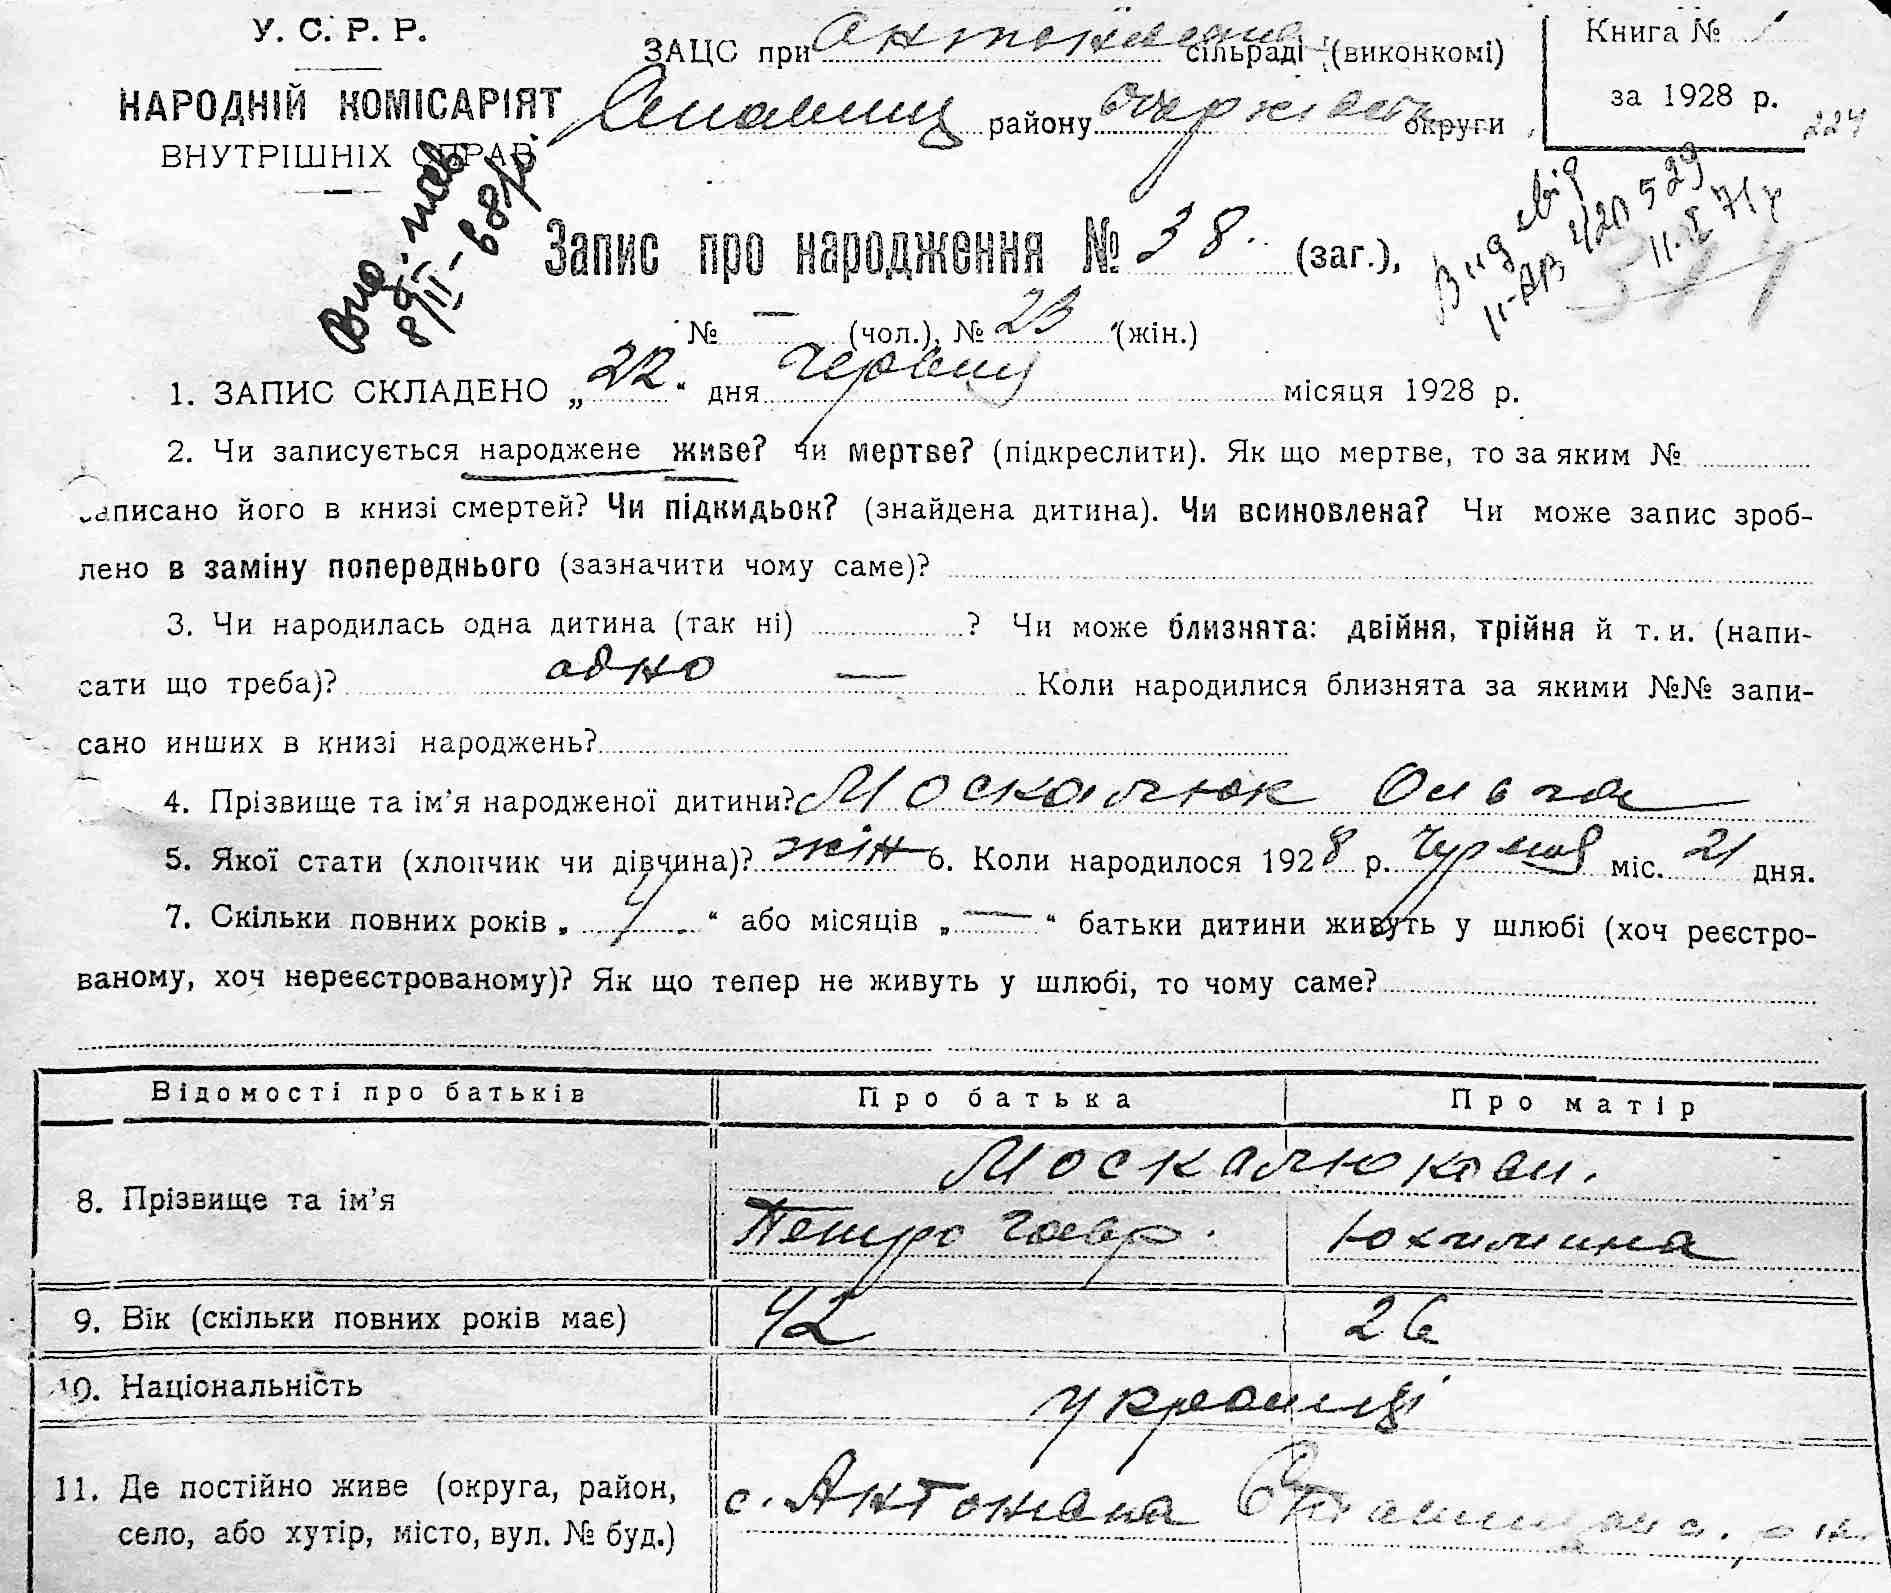 У. С. Р. Р.
НАРОДНІЙ КОМІСАРІЯТ
ВНУТРІШНІХ СПРАВ
ЗАЦС при сільраді (виконкомі)
району округи
Книга № 1
за 1928 р.
224
8/II-68р.
Запис про народження № 38 (заг.),
№ — (чол.), № 23 (жін.)
1. ЗАПИС СКЛАДЕНО „22" дня Червня місяця 1928 р.
2. Чи записується народжене живе? чи мертве? (підкреслити). Як що мертве, то за яким №
записано його в книзі смертей? Чи підкидьок? (знайдена дитина). Чи всиновлена? Чи може запис зроб-
лено в заміну попереднього (зазначити чому саме)?
3. Чи народилась одна дитина (так ні) ? Чи може близнята: двійня, трійня й т. и. (напи-
сати що треба)? одно — Коли народилися близнята за якими №№ запи-
сано инших в книзі народжень?
4. Прізвище та ім'я народженої дитини? Москалюк Ольга
5. Якої стати (хлопчик чи дівчина)? жін 6. Коли народилося 1928 р. міс. 21 дня.
7. Скільки повних років „ " або місяців „—" батьки дитини живуть у шлюбі (хоч реєстро-
ваному, хоч нереєстрованому)? Як що тепер не живуть у шлюбі, то чому саме?
Відомості про батьків Про батька Про матір
8. Прізвище та ім'я Москалюкови.
Петро Гавр. Юхимина
9. Вік (скільки повних років має) 42 26
10. Національність українці
11. Де постійно живе (округа, район,
село, або хутір, місто, вул. № буд.) с. Антонівка